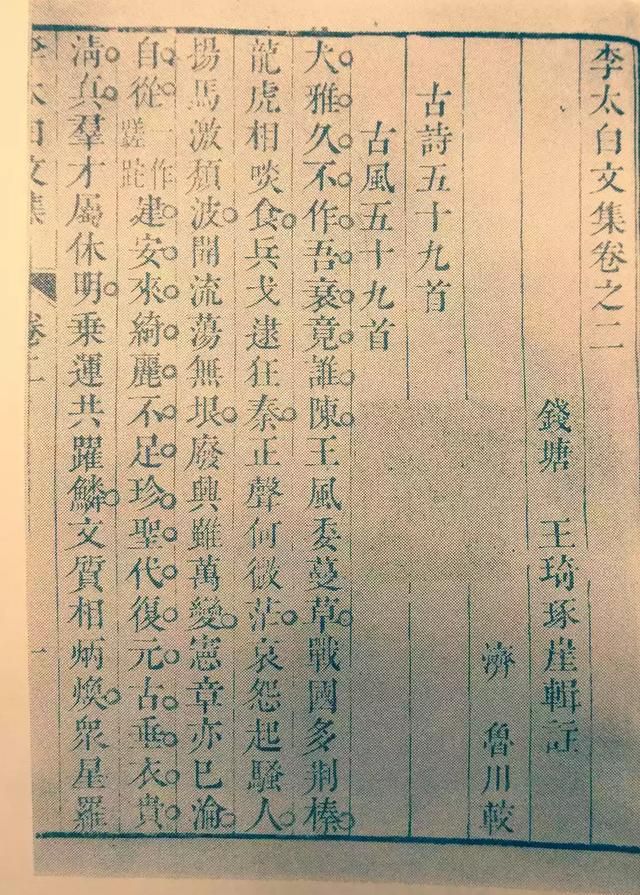 李太白文集卷之二
錢塘 王琦琢崖輯註
濟 魯川較
古詩五十九首
古風五十九首
大雅久不作吾衰竟誰陳王風委蔓草戰國多荆榛
龍虎相啖食兵戈逮狂秦正聲何微茫哀怨起騷人
揚馬激頽波開流蕩無垠廢興雖萬變憲章亦已淪
自從一作蹉跎建安來綺麗不足珍聖代復元古垂衣貴
淸眞羣才屬休明乗運共躍鱗文質相炳煥衆星羅
李太白文集 卷二 一